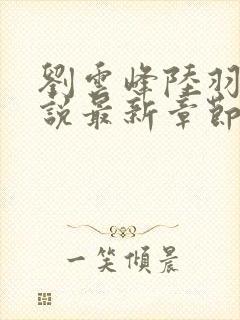 劉雲峰陸羽
說最新章節
一笑傾晨